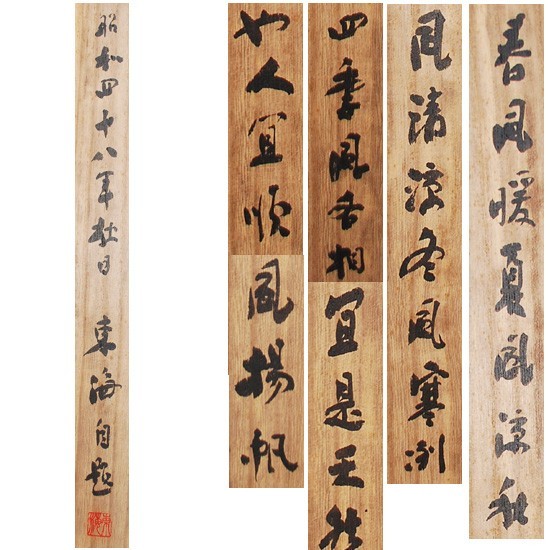 春風暖夏風涼秋
風清涼冬風寒冽
四季風各相宜是天然
如人宜順風揚帆
昭和四十八年秋日 東海自題